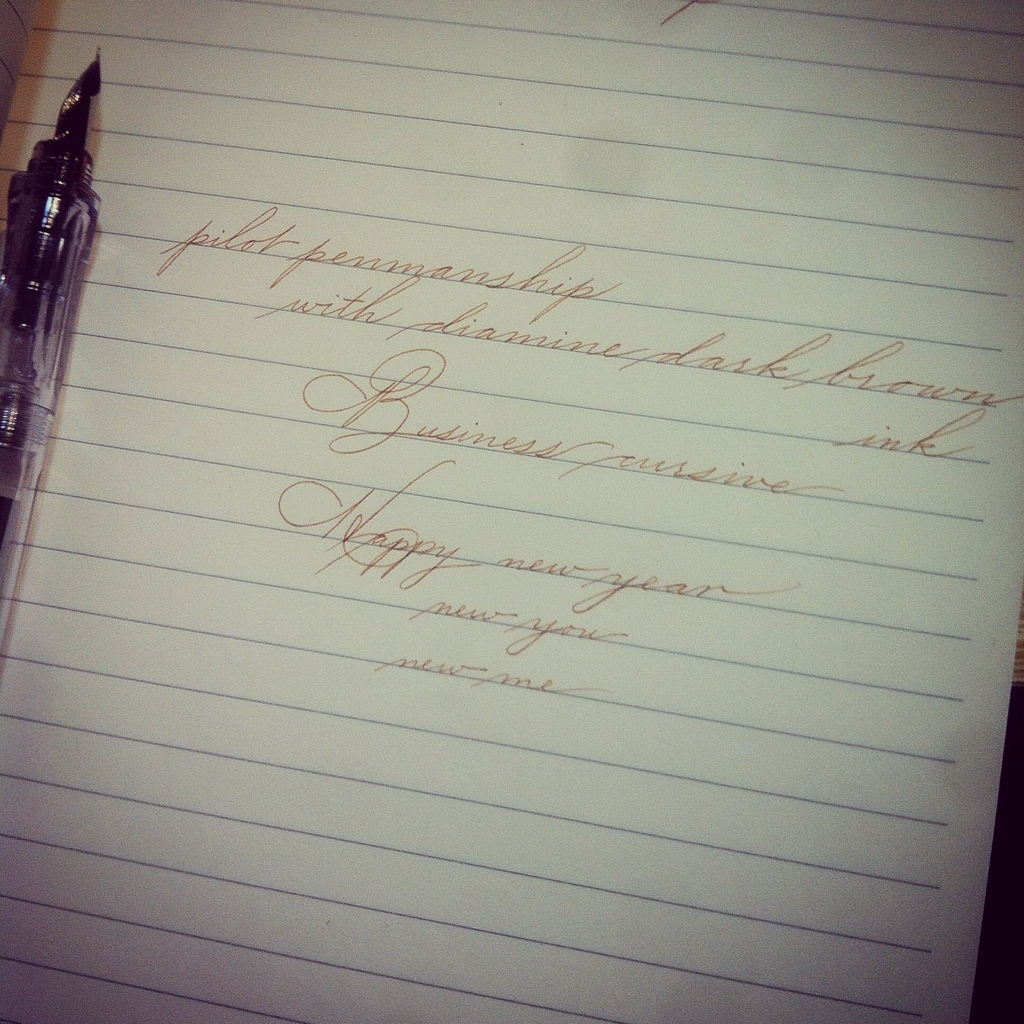 pilot penmanship
with diamine dark brown
ink
Business cursive
Happy new year
new you
new me